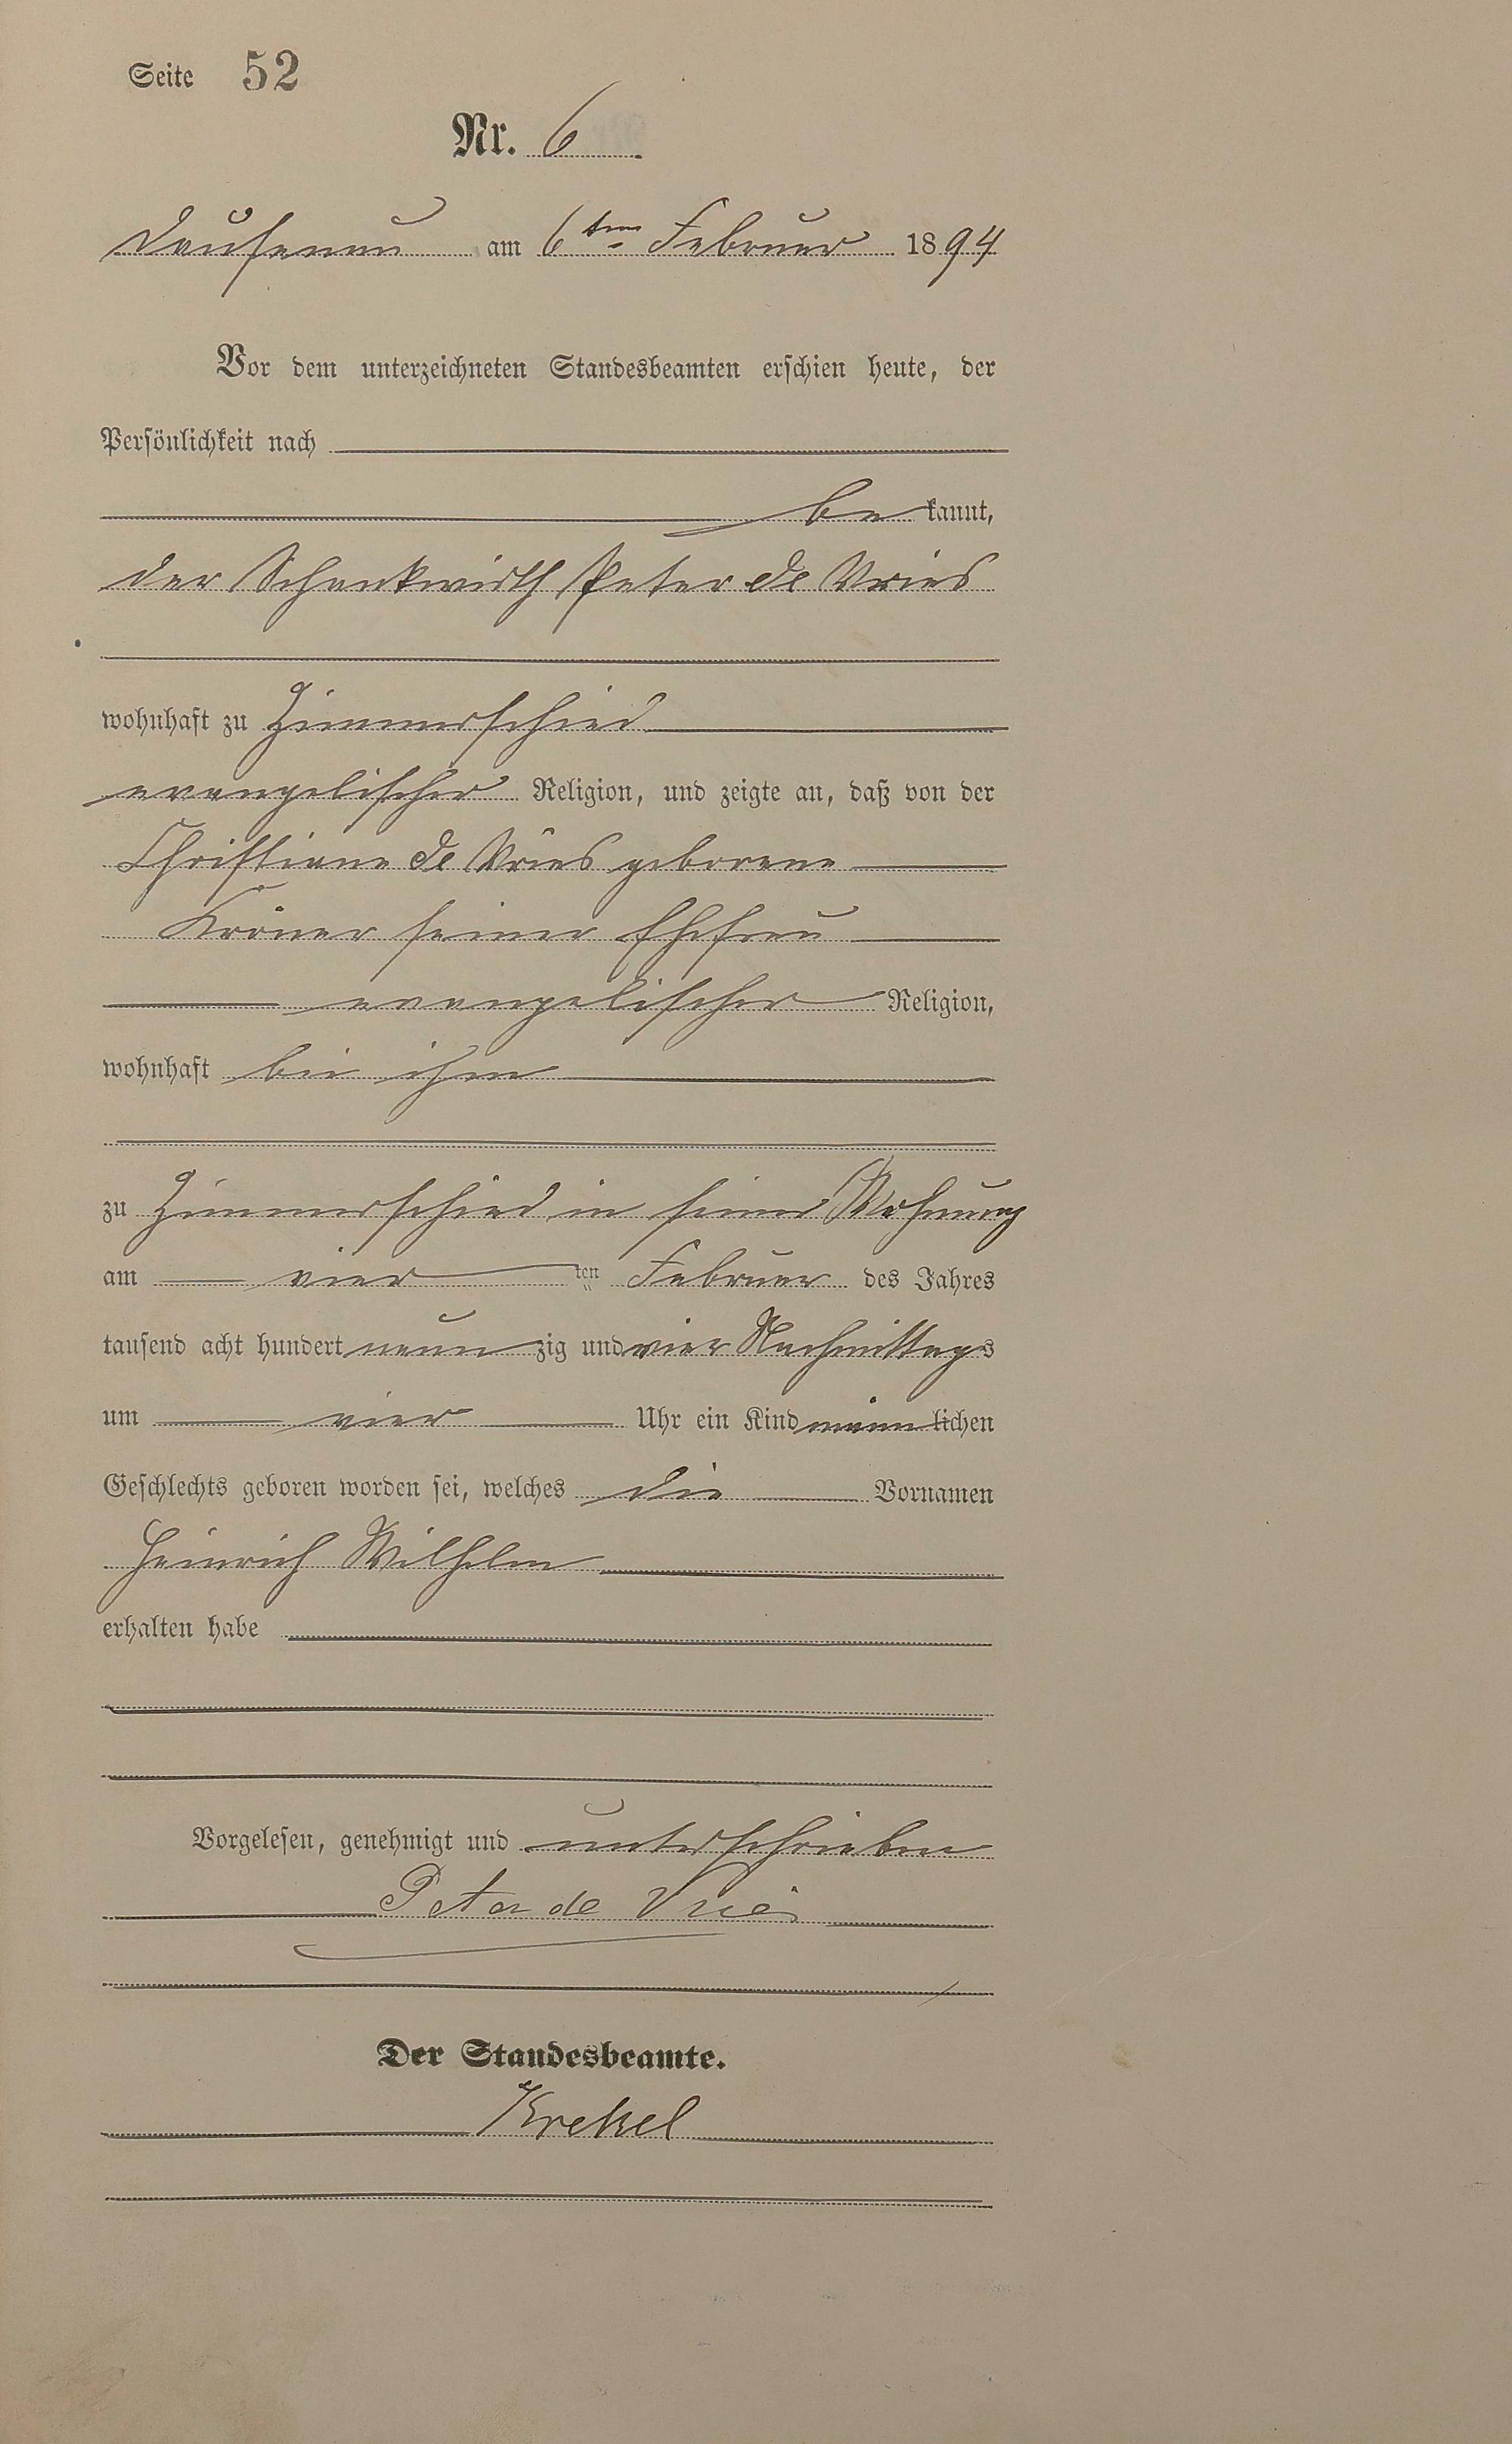 Seite 52
Nr. 6
Dausenau am 6ten Februar 1894
Vor dem unterzeichneten Standesbeamten erschien heute, der
Persönlichkeit nach
be kannt,
der Schenkwirth Peter de Vries
wohnhaft zu Zimmerschied
evangelischer Religion, und zeigte an, daß von der
Christiane de Vries geborene
Kröner seiner Ehefrau
evangelischer Religion,
wohnhaft bei ihm
zu Zimmerschied in seiner Wohnung
am vier ten Februar des Jahres
tausend acht hundert neun zig und vier Nachmittags
um vier Uhr ein Kind männ lichen
Geschlechts geboren worden sei, welches die Vornamen
Heinrich Wilhelm
erhalten habe
Vorgelesen, genehmigt und unterschrieben
Peter de Vries
Der Standesbeamte.
Krekel